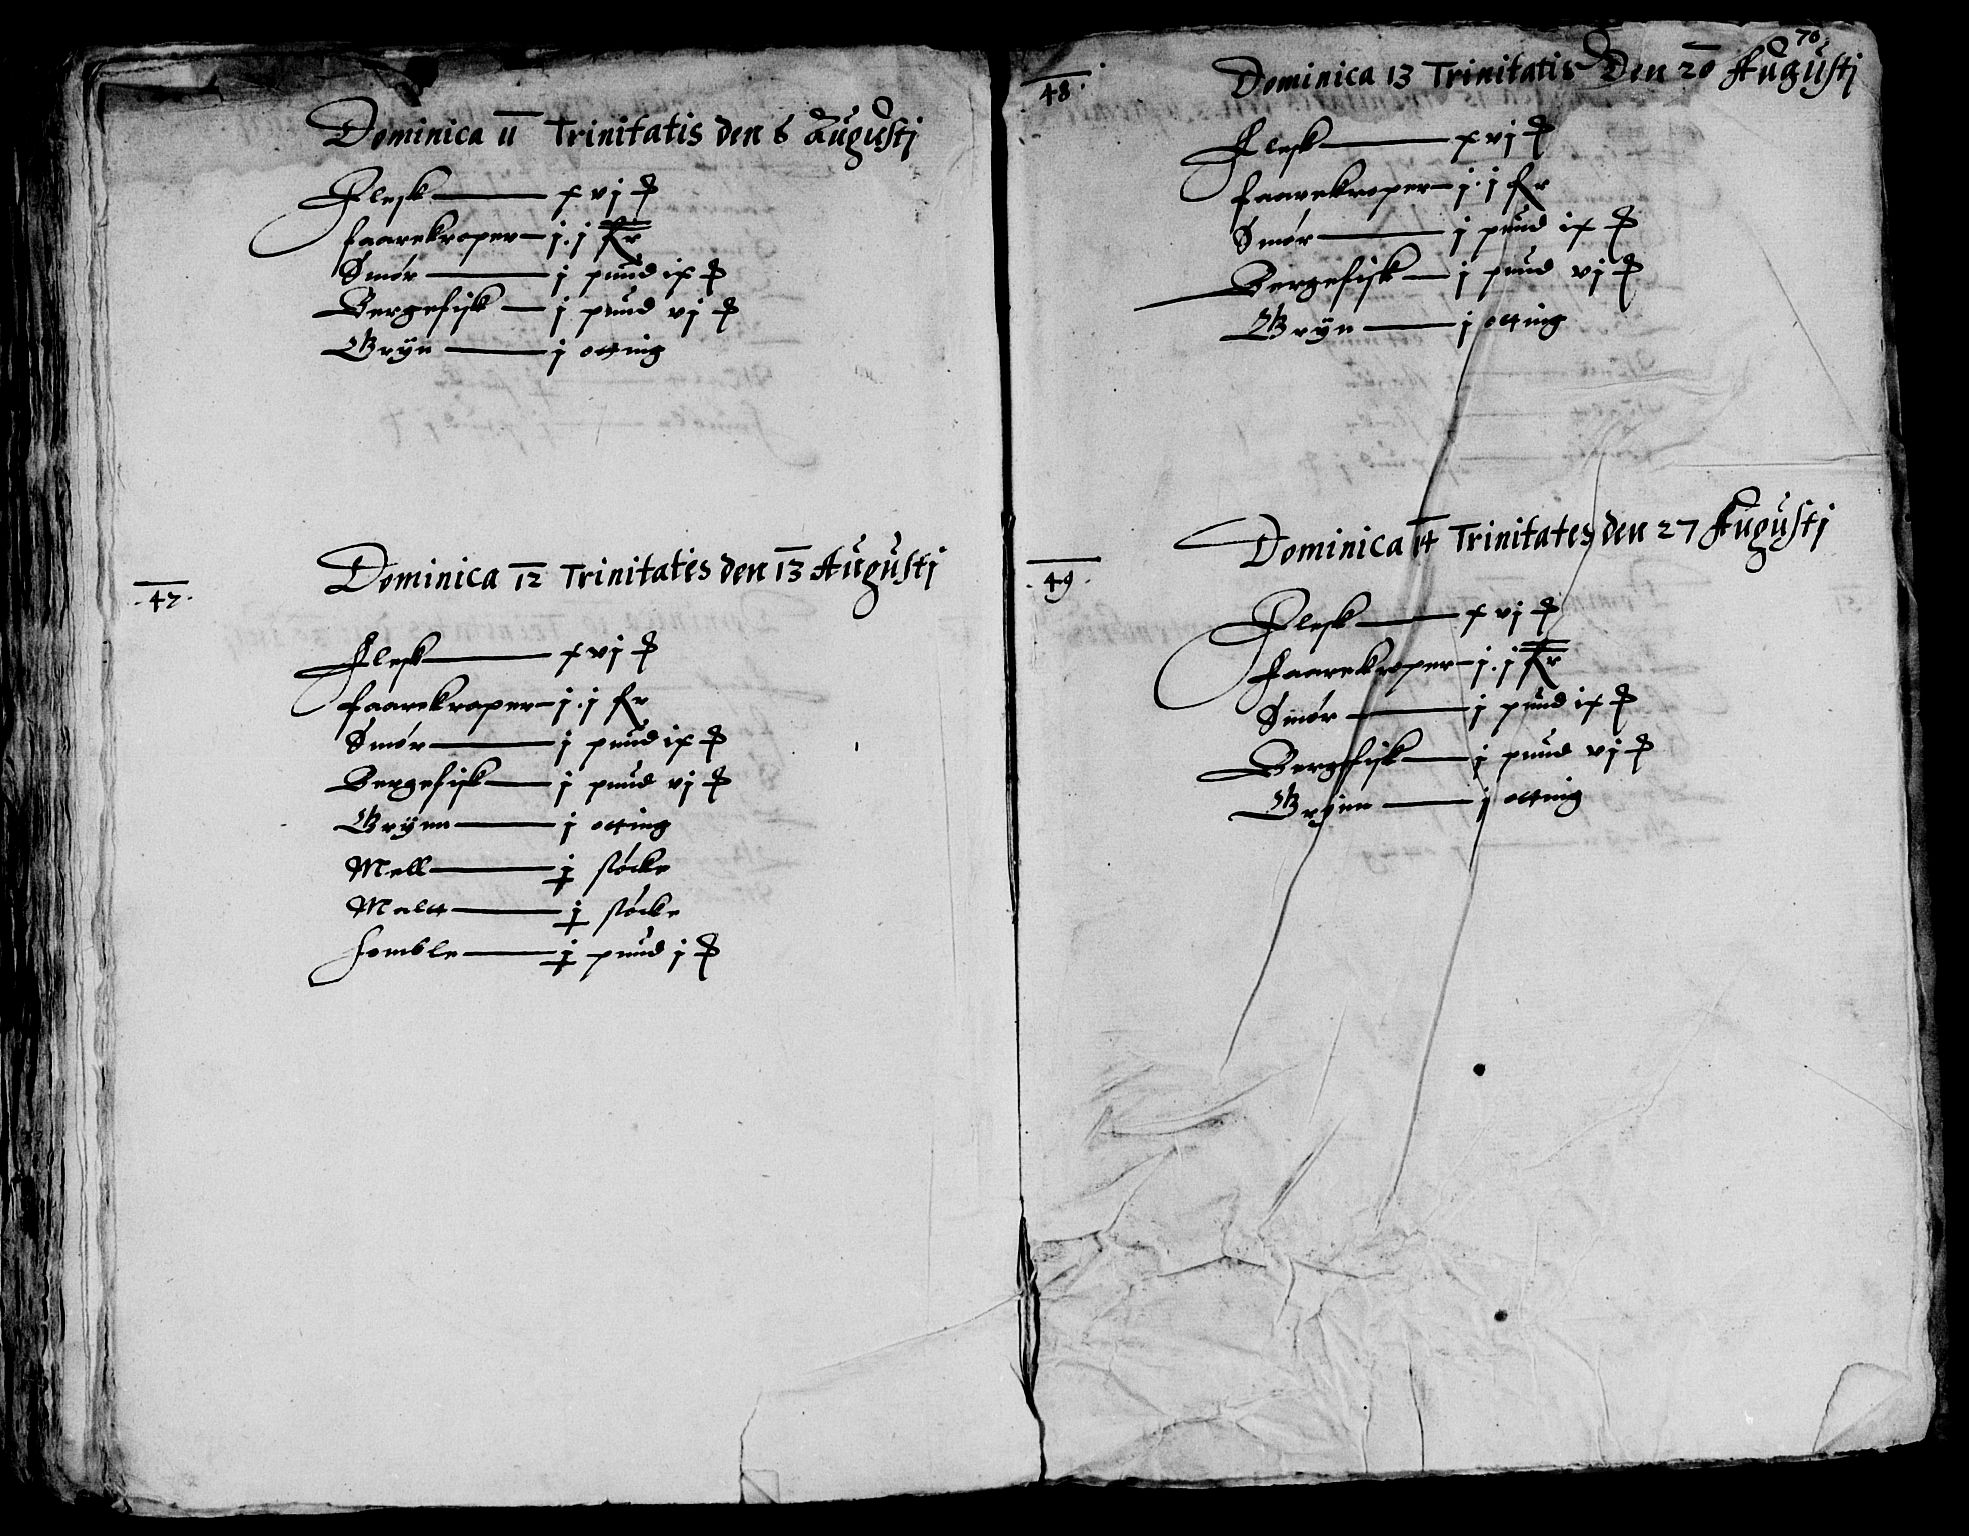 Dominica 11 Trinitatis den 6 Augustj
Flesk — xvj ℔
faarekroper — j. j fr
Smør — j pund ix ℔
Bergefisk — j pund vj ℔
Grÿn — j otting
47.
Dominica 12 Trinitates den 13 Augustj
Flesk — xvj ℔
faarekroper — j. j fr
Smør — j pund ix ℔
Bergefisk — j pund vj ℔
Grÿnn — j otting
Mell — j støcke
Malt — j støcke
homble — j pund j ℔
70
48.
Dominica 13 Trinitatis Den 20 Augustj
Flesk — xvj ℔
faarekroper — j. j fr
Smør — j pund ix ℔
Bergefisk — j pund vj ℔
Grÿn — j otting
49.
Dominica 14 Trinitates den 27 Augustj
Flesk — xvj ℔
faarekroper — j. j fr
Smør — j pund ix ℔
Bergefisk — j pund vj ℔
Grÿnn — j otting